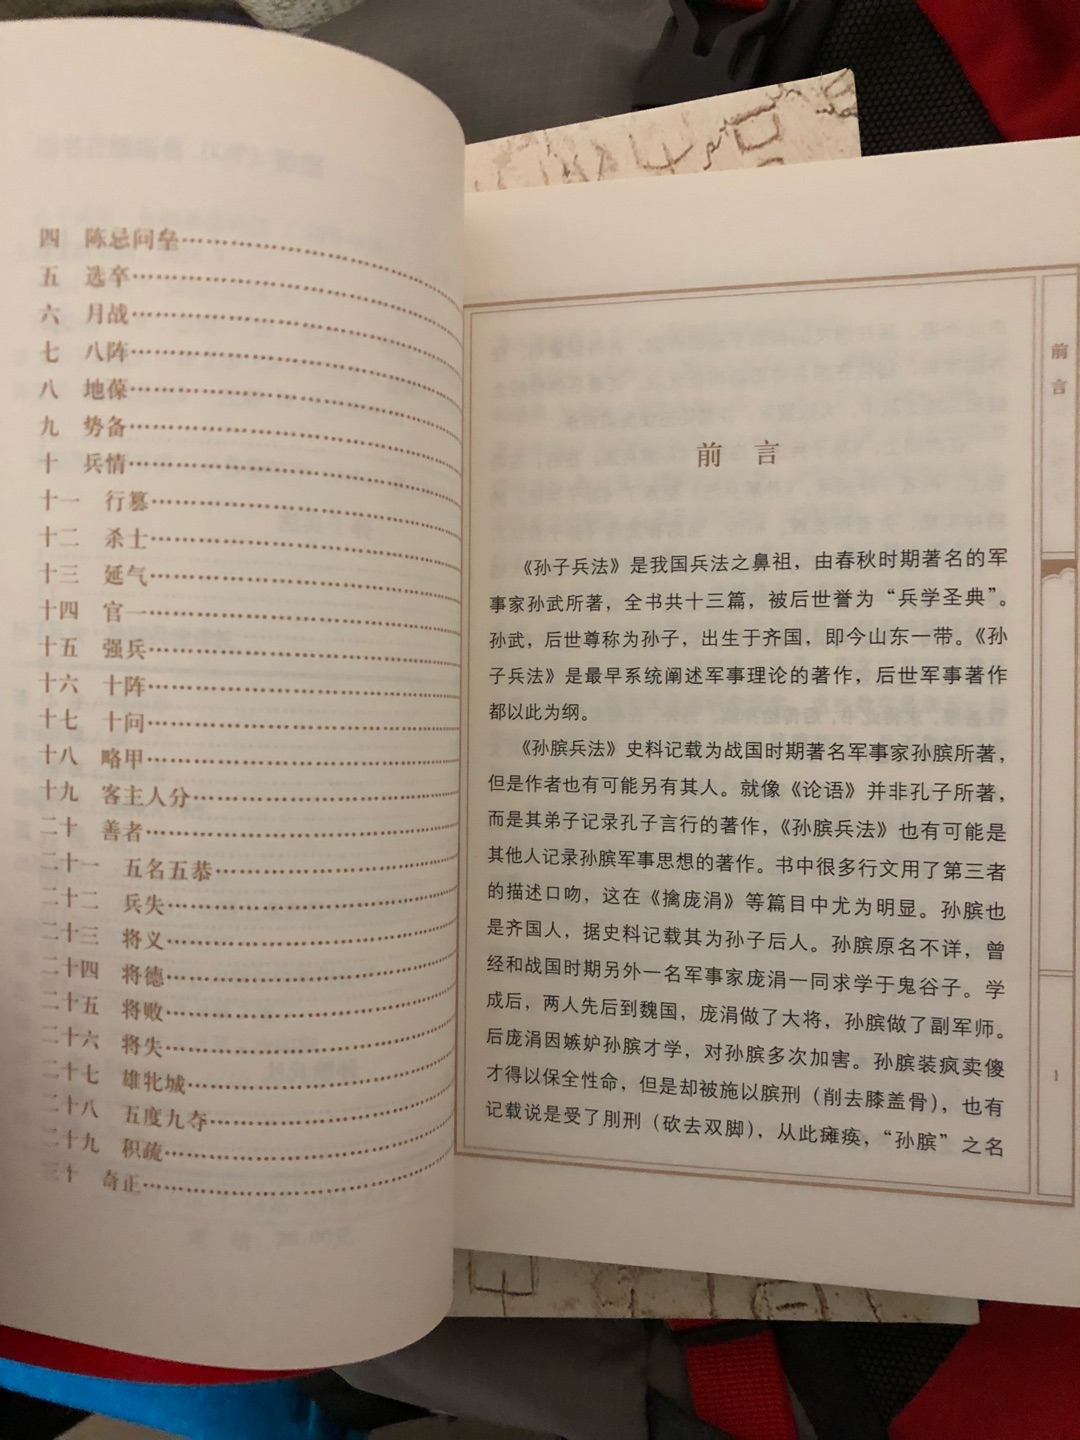 四 陈忌问垒
五 选卒
六 月战
七 八阵
八 地葆
九 势备
十 兵情
十一 行篡
十二 杀士
十三 延气
十四 官一
十五 强兵
十六 十阵
十七 十问
十八 略甲
十九 客主人分
二十 善者
二十一 五名五恭
二十二 兵失
二十三 将义
二十四 将德
二十五 将败
二十六 将失
二十七 雄牝城
二十八 五度九夺
二十九 积疏
三十 奇正
前言
《孙子兵法》是我国兵法之鼻祖，由春秋时期著名的军
事家孙武所著，全书共十三篇，被后世誉为“兵学圣典”。
孙武，后世尊称为孙子，出生于齐国，即今山东一带。《孙
子兵法》是最早系统阐述军事理论的著作，后世军事著作
都以此为纲。
《孙膑兵法》史料记载为战国时期著名军事家孙膑所著，
但是作者也有可能另有其人。就像《论语》并非孔子所著，
而是其弟子记录孔子言行的著作，《孙膑兵法》也有可能是
其他人记录孙膑军事思想的著作。书中很多行文用了第三者
的描述口吻，这在《擒庞涓》等篇目中尤为明显。孙膑也
是齐国人，据史料记载其为孙子后人。孙膑原名不详，曾
经和战国时期另外一名军事家庞涓一同求学于鬼谷子。学
成后，两人先后到魏国，庞涓做了大将，孙膑做了副军师。
后庞涓因嫉妒孙膑才学，对孙膑多次加害。孙膑装疯卖傻
才得以保全性命，但是却被施以膑刑（削去膝盖骨），也有
记载说是受了刖刑（砍去双脚），从此瘫痪，“孙膑”之名
前言
1